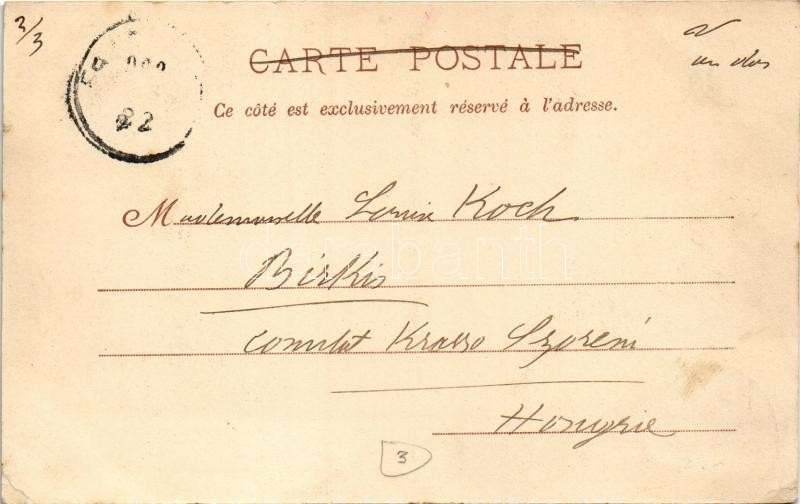 3/3
CARTE POSTALE
Ce côté est exclusivement réservé à l'adresse.
22
Mademoiselle Louise Koch
Birkis
comitat Krasso Szoreni
Hongrie
3
darabanth